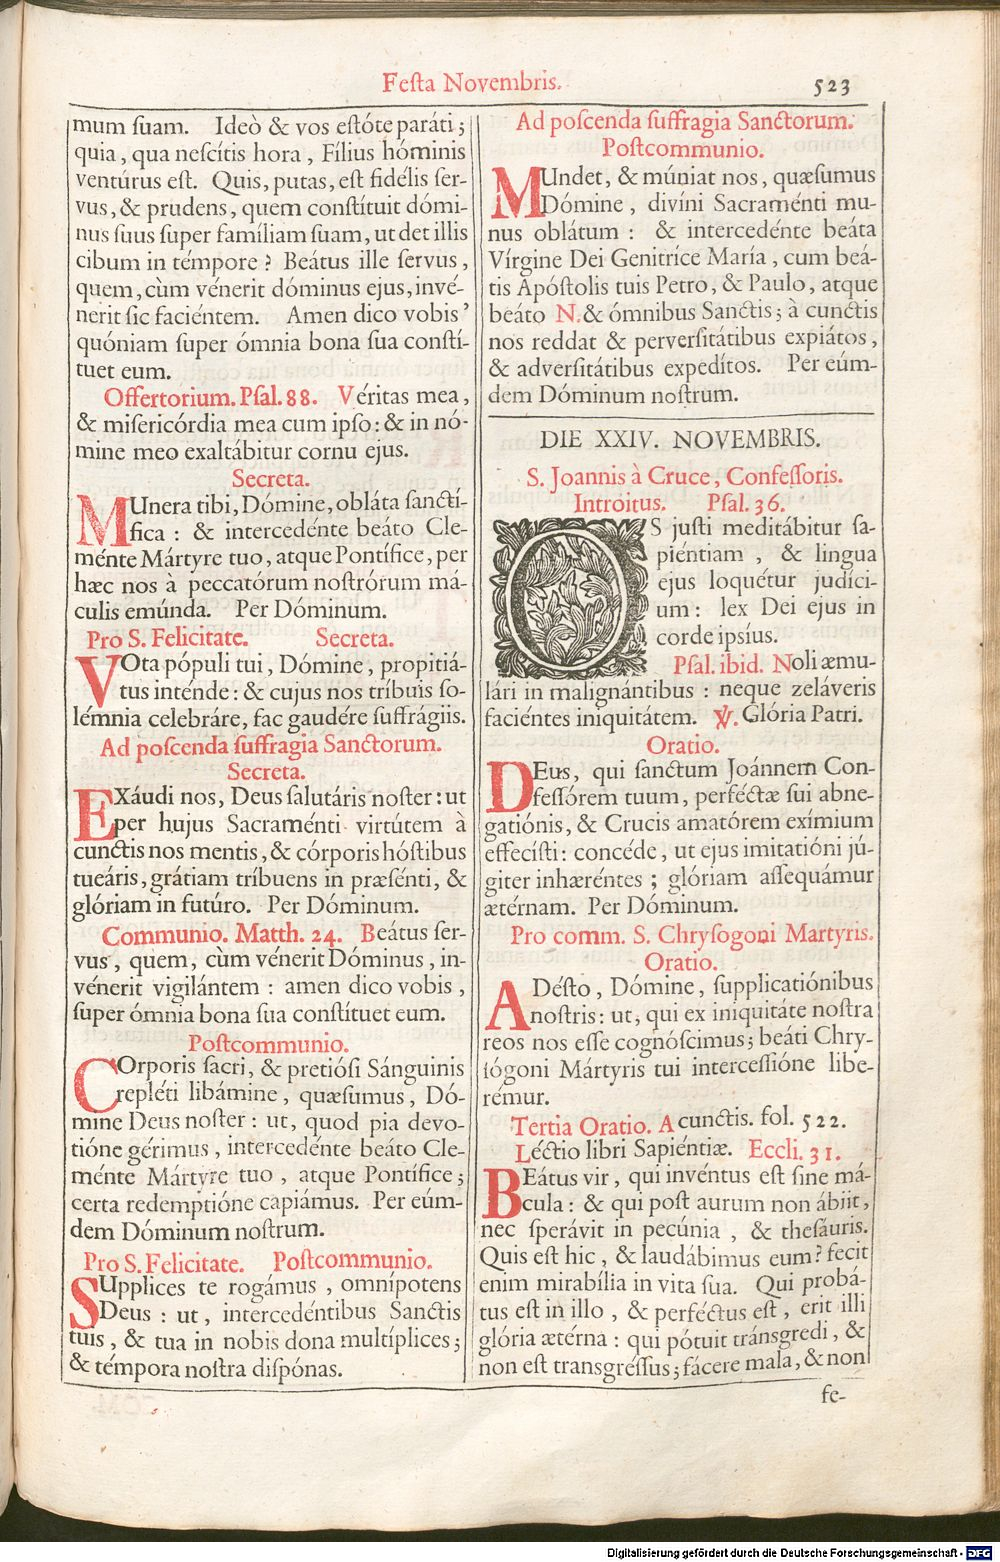 Festa Novembris. 523
mum ſuam. Ideò & vos eſtóte paráti;
quia, qua neſcítis hora, Fílius hóminis
ventúrus eſt. Quis, putas, eſt fidélis ſer-
vus, & prudens, quem conſtítuit dómi-
nus ſuus ſuper famíliam ſuam, ut det illis
cibum in témpore? Beátus ille ſervus,
quem, cùm vénerit dóminus ejus, invé-
nerit ſic faciéntem. Amen dico vobis,
quóniam ſuper ómnia bona ſua conſtí-
tuet eum.
Offertorium. Pſal. 88. Véritas mea,
& miſericórdia mea cum ipſo: & in nó-
mine meo exaltábitur cornu ejus.
Secreta.
MUnera tibi, Dómine, obláta ſanctí-
fica: & intercedénte beáto Cle-
ménte Mártyre tuo, atque Pontífice, per
hæc nos à peccatórum noſtrórum má-
culis emúnda. Per Dóminum.
Pro S. Felicitate. Secreta.
VOta pópuli tui, Dómine, propitiá-
tus inténde: & cujus nos tríbuis ſo-
lémnia celebráre, fac gaudére ſuffrágiis.
Ad poſcenda ſuffragia Sanctorum.
Secreta.
EXáudi nos, Deus ſalutáris noſter: ut
per hujus Sacraménti virtútem à
cunctis nos mentis, & córporis hóſtibus
tueáris, grátiam tríbuens in præſénti, &
glóriam in futúro. Per Dóminum.
Communio. Matth. 24. Beátus ſer-
vus, quem, cùm vénerit Dóminus, in-
vénerit vigilántem: amen dico vobis,
ſuper ómnia bona ſua conſtítuet eum.
Poſtcommunio.
COrporis ſacri, & pretióſi Sánguinis
repléti libámine, quæſumus, Dó-
mine Deus noſter: ut, quod pia devo-
tióne gérimus, intercedénte beáto Cle-
ménte Mártyre tuo, atque Pontífice;
certa redemptióne capiámus. Per eúm-
dem Dóminum noſtrum.
Pro S. Felicitate. Poſtcommunio.
SUpplices te rogámus, omnípotens
Deus: ut, intercedéntibus Sanctis
tuis, & tua in nobis dona multíplices;
& témpora noſtra diſpónas.
Ad poſcenda ſuffragia Sanctorum.
Poſtcommunio.
MUndet, & múniat nos, quæſumus
Dómine, divíni Sacraménti mu-
nus oblátum: & intercedénte beáta
Vírgine Dei Genitríce María, cum beá-
tis Apóſtolis tuis Petro, & Paulo, atque
beáto N. & ómnibus Sanctis; à cunctis
nos reddat & perverſitátibus expiátos,
& adverſitátibus expedítos. Per eúm-
dem Dóminum noſtrum.
DIE XXIV. NOVEMBRIS.
S. Joannis à Cruce, Confeſſoris.
Introitus. Pſal. 36.
OS juſti meditábitur ſa-
piéntiam, & lingua
ejus loquétur judíci-
um: lex Dei ejus in
corde ipsíus.
Pſal. ibid. Noli æmu-
lári in malignántibus: neque zeláveris
faciéntes iniquitátem. ℣. Glória Patri.
Oratio.
DEus, qui ſanctum Joánnem Con-
feſſórem tuum, perféctæ ſui abne-
gatiónis, & Crucis amatórem exímium
effecíſti: concéde, ut ejus imitatióni jú-
giter inhæréntes; glóriam aſſequámur
ætérnam. Per Dóminum.
Pro comm. S. Chryſogoni Martyris.
Oratio.
ADéſto, Dómine, ſupplicatiónibus
noſtris: ut, qui ex iniquitáte noſtra
reos nos eſſe cognóſcimus; beáti Chry-
ſógoni Mártyris tui interceſſióne libe-
rémur.
Tertia Oratio. A cunctis. fol. 522.
Léctio libri Sapiéntiæ. Eccli. 31.
BEátus vir, qui invéntus eſt ſine má-
cula: & qui poſt aurum non ábiit,
nec ſperávit in pecúnia, & theſáuris.
Quis eſt hic, & laudábimus eum? fecit
enim mirabília in vita ſua. Qui probá-
tus eſt in illo, & perféctus eſt, erit illi
glória ætérna: qui pótuit tránsgredi, &
non eſt transgréſſus; fácere mala, & non
fe-
Digitalisierung gefördert durch die Deutsche Forschungsgemeinschaft - DFG